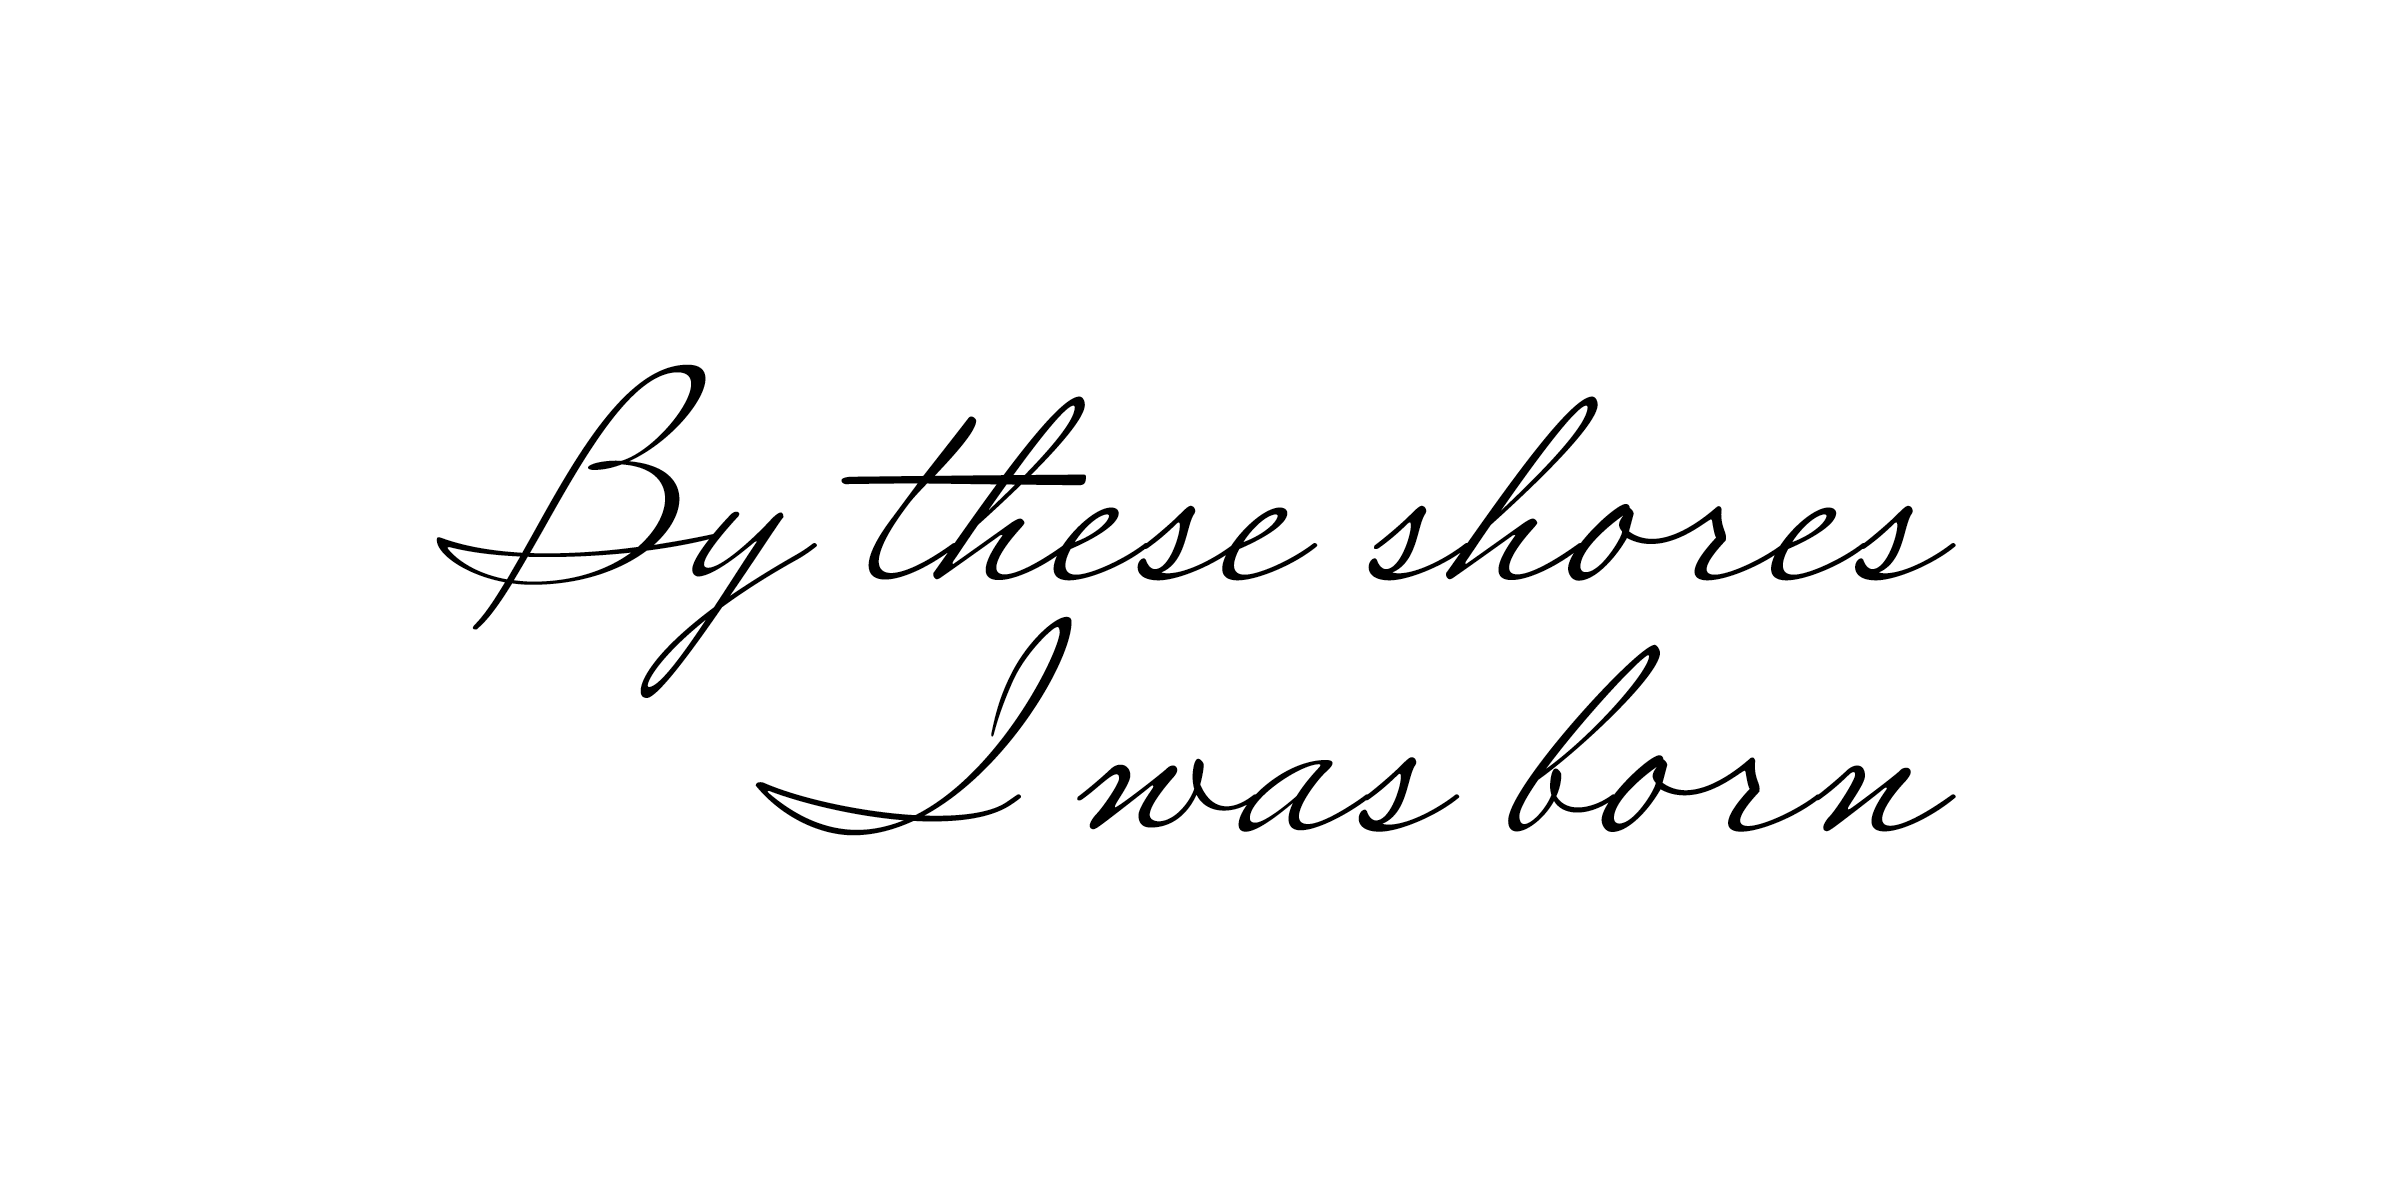 By these shores
I was born